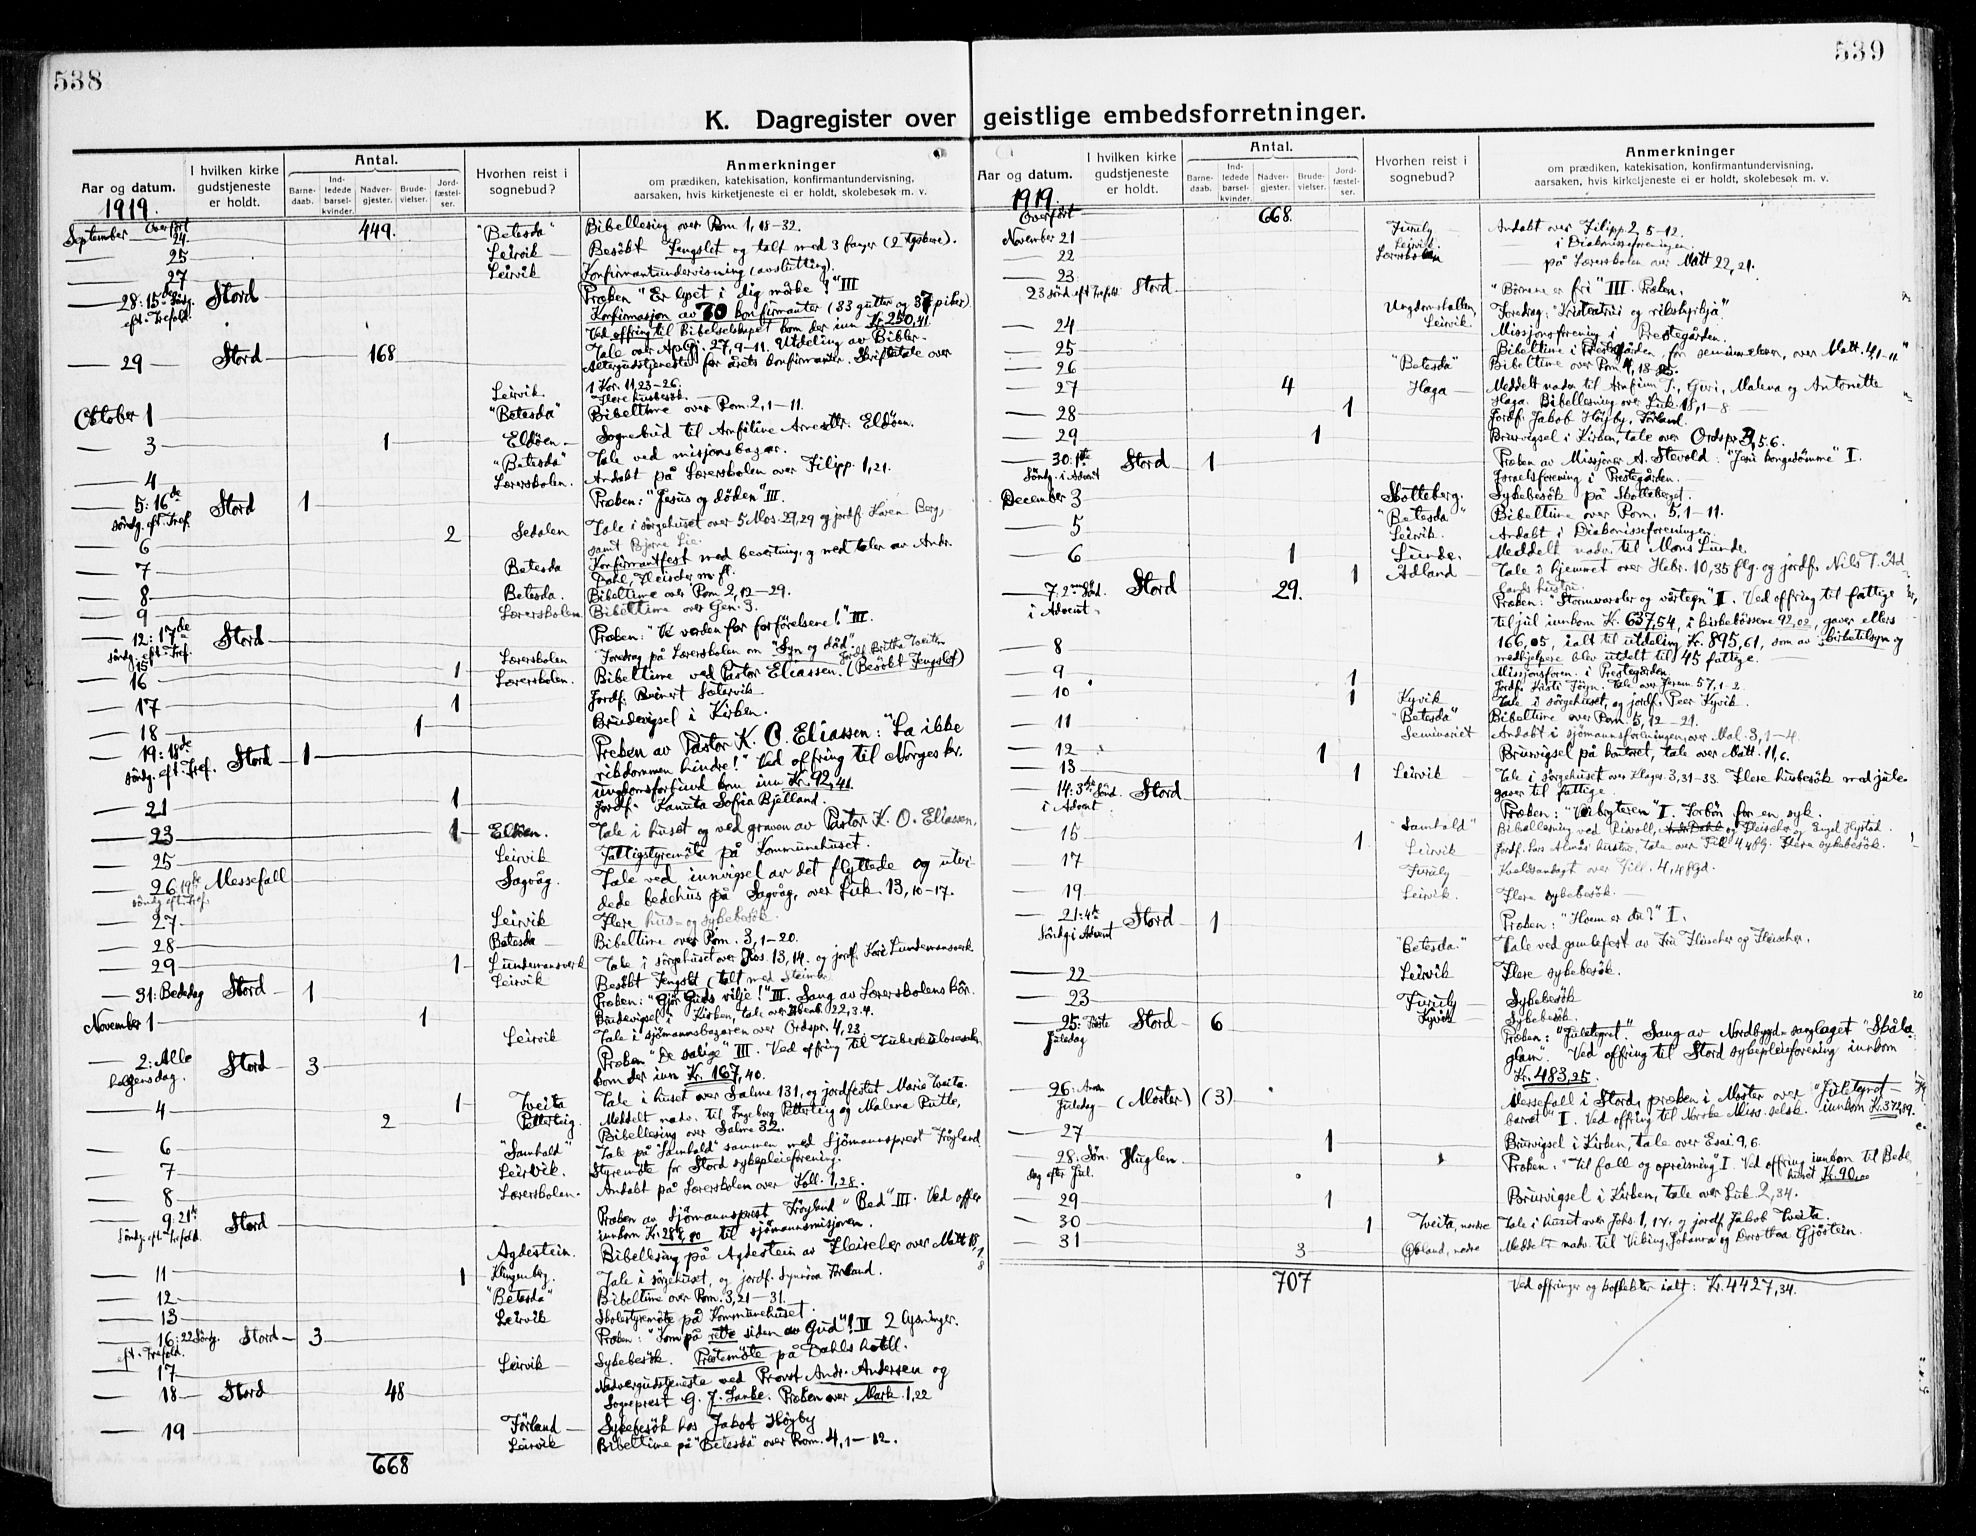 538
K. Dagregister over
Aar og datum.
1919.
I hvilken kirke gudstjeneste er holdt.
Antal.
Barne-daab.
Ind-ledede barsel-kvinder.
Nadver-gjester.
Brude-vielser.
Jord-fæstel-ser.
Hvorhen reist i sognebud?
Anmerkninger
om prædiken, katekisation, konfirmantundervisning,
aarsaken, hvis kirketjeneste ei er holdt, skolebesøk m. v.
Overført 449.
September 24 "Betesda" Bibellesing over Rom 1,18-32.
25 Leirvik Besökt Fengslet og talt med 3 fanger (2 tyskere).
27 Leirvik Konfirmantundervisning (avslutting).
28: 15de söndg. eft. Trefold. Stord Præken "Er lyset i dig mörke?" III
Konfirmasjon av 70 konfirmanter (33 gutter og 37 piker)
Ved offring til Bibelselskapet kom der inn Kr. 250,41.
Tale over Ap.Gj. 27,9-11. Utdeling av Bibler.
29 Stord 168 Altergudstjeneste for årets konfirmanter. Skriftetale over
1 Kor. 11,23-26.
Leirvik Flere husbesök.
Oktober 1 "Betesda" Bibeltime over Rom. 2,1-11.
3 1 Eldöen Sognebud til Arnfiline Arnesdtr. Eldöen.
"Betesda" Tale ved misjonsbazar.
4 Lærerskolen. Andakt på Lærerskolen over Filipp. 1,21.
5: 16de söndg. eft. Tref. Stord 1 Præken: "Jesus og döden" III.
6 2 Sedalen Tale i sörgehuset over 5 Mos. 29,29 og jordf. Karen Berg,
samt Bjarne Lie.
7 Betesda Konfirmantfest med bevertning, og med taler av Andr.
Dahl, Fleischer m. fl.
8 Betesda. Bibeltime over Rom 2,12-29.
9 Lærerskolen Bibeltime over Gen. 3.
12: 17de söndg. eft. Tref. Stord Præken: "Ve verden for forförelsene!" III.
15 Lærerskolen Foredrag på Lærerskolen om "Syn og dåd". Jordf. Britha Tveiten
16 1 Lærerskolen. Bibeltime ved Pastor Eliassen. (Besökt Fengslet)
17 1 Jordf. Sætervik
18 1 Brudevigsel i Kirken.
19: 18de söndg. eft. Tref. Stord 1 Præken av Pastor K. O. Eliassen: "La ikke
rikdommen hindre!" Ved offring til Norges kr.
ungdomsforbund kom inn Kr. 92,41.
21 1 Jordf. Kanuta Sofia Bjelland.
23 1 Eldöen. Tale i huset og ved graven av Pastor K. O. Eliassen.
25 Leirvik Fattigstyremöte på Kommunehuset.
26 19de söndg. eft. Tref. Messefall Sagvåg. Tale ved innvigsel av det flyttede og utvi-
dede bedehus på Sagvåg, over Luk. 13,10-17.
27 Leirvik Flere hus- og sykebesök.
28 Betesda Bibeltime over Rom. 3,1-20.
29 1 Lundemansverk Tale i sörgehuset over Hos. 13,14. og jordf. Kari Lundemansverk
Leirvik Besökt Fengslet (talt med
31: Bededag Stord 1 Præken: "Gjör Guds vilje!" III. Sang av Lærerskolens kör.
November 1 1 Brudevigsel i Kirken, tale over Åbenb. 22,3.4.
Leirvik Tale i sjömannsbazaren over Ordspr. 4,23.
2: Alle helgensdag. Stord 3 Præken "De salige" III. Ved offring til Tuberkulosesaken
kom der inn Kr. 167,40.
4 1 Tveita Tale i huset over Salme 131, og jordfestet Marie Tveita.
2 Petterteig. Meddelt nadv. til Ingeborg Petterteig og Malena Rutle,
Bibellesing over Salme 32.
6 "Samhald" Tale på "Samhald" sammen med Sjömannsprest Fröyland
7 Leirvik. Styremöte for Stord sykepleieforening.
8 Lærerskolen. Andakt på Lærerskolen over Koll. 1,28.
9: 21de söndg. eft. Trefold. Stord Præken av Sjömannsprest Fröyland "Bed" III. Ved offer
innkom Kr. 288,90 til sjömannsmisjonen.
Agdestein. Bibellesing på Agdestein av Fleischer over Matt 18,
11 1 Klingenberg. Tale i sörgehuset, og jordf. Synnöva Förland.
12 "Betesda" Bibeltime over Rom. 3,21-31.
13 Leirvik Skolestyremöte på Kommunehuset.
16: 22 söndg. eft. Trefold. Stord 3 Præken: "Kom på rette siden av Gud"! III 2 lysninger.
17 Leirvik Sykebesök. Prestemöte på Dahls hotell.
18 Stord 48 Nadvergudstjeneste ved Provst Andr. Andersen og
Sogneprest G. J. Lanke. Præken over Mark. 1,22
19 Förland Sykebesök hos Jakob Höyby
Leirvik Bibeltime på "Betesda" over Rom. 4,1-12.
668
539
geistlige embedsforretninger.
Aar og datum.
1919.
I hvilken kirke gudstjeneste er holdt.
Antal.
Barne-daab.
Ind-ledede barsel-kvinder.
Nadver-gjester.
Brude-vielser.
Jord-fæstel-ser.
Hvorhen reist i sognebud?
Anmerkninger
om prædiken, katekisation, konfirmantundervisning,
aarsaken, hvis kirketjeneste ei er holdt, skolebesøk m. v.
Overfört 668.
November 21 Furuly Andakt over Filipp 2,5-12.
22 Leirvik. i Diakonisseforeningen.
Lærerskolen på Lærerskolen over Matt 22,21.
23 23 sönd. eft. Trefold. Stord "Börnene er fri" III. Præken.
Ungdomshallen, Leirvik Foredrag: "Kristentrui og rikstyrsja".
24 Missjonsforening i Prestegården.
25 Bibeltime i Prestegården, for seminarelever, over Matt. 4,1-11
26 "Betesda" Bibeltime over Rom 4,18-25.
27 4 Haga Meddelt nadv. til Arnfinn T., Guri, Malena og Antonette
Haga. Bibellesning over Luk. 18,1-8
28 1 Jordf. Jakob Höyby, Förland.
29 1 Bruvigsel i Kirken, tale over Ordspr. 3,5.6.
30: 1ste Söndg. i Advent Stord 1 Præken av Missjonær A. Stevold: "Jesu kongedömme" I.
Israelsforening i Prestegården.
December 3 Skotteberg. Sykebesök på Skotteberget.
"Betesda" Bibeltime over Rom. 5,1-11.
5 Leirvik. Andakt i Diakonisseforeningen
6 1 Lunde. Meddelt nadv. til Mons Lunde.
1 Adland Tale i hjemmet over Hebr. 10,35 flg. og jordf. Nils T. Ad-
lands hustru.
7. 2nn Sönd. i Advent. Stord 29. Præken: "Stormvarsler og vårtegn" II. Ved offring til fattige
til jul innkom Kr. 637,54, i kirkebössene 92,02, gaver ellers
166,05, ialt til utdeling Kr. 895,61, som av kirketilsyn og
medhjelpere blev utdelt til 45 fattige.
8 Missjonsforen. i Prestegården
9 1 Jordf. Kristi Töyn. Tale over Jerem 57,1-2.
10 1 Kyvik Tale i sörgehuset, og jordf. Peer Kyvik.
"Betesda" Bibeltime over Rom 5,12-21.
11 Seminariet Andakt i sjömannsforeningen, over Mal. 3,1-4.
12 1 Bruvigsel på kontoret, tale over Matt. 11,6.
13 1 Leirvik Tale i sörgehuset over Klages. 3,31-33. Flere husbesök med jule-
gaver til fattige.
14: 3die Sönd. i Advent Stord Præken: "Veibryteren" I. Forbön for en syk.
15 "Samhald" Bibellesning ved Risvoll, og Fleischer Hystad.
1 Leirvik Jordf. Lars Almås hustru, tale over Fil 4,4flg. Flere sykebesök.
17 Furuly Kveldsandagt over Fill. 4,4flgd.
19 Leirvik. Flere sykebesök.
21: 4de Söndg i Advent Stord 1 Præken: "Hvem er du?" I.
"Betesda." Tale ved gamlefest av Fru Fleischer og Fleischer.
22 Leirvik Flere sykebesök.
23 Furuly Sykebesök
Kyvik Sykebesök.
25: Förste Juledag Stord 6 Præken: "Juletegnet". Sang av Nordbygd-sanglaget "Skåla-
glam". Ved offring til Stord sykepleieforening innkom
Kr. 483,25.
26: Annen Juledag (Moster) (3) Messefall i Stord, præken i Moster over "Juletegnet-
barnet" I. Ved offring til Norske Miss. selsk. innkom Kr. 372,89.
27 1 Bruvigsel i Kirken, tale over Esai 9,6.
28: Sön. dag efter Jul. Huglen Præken: "Til fall og opreisning" I. Ved offring innkom til Bede-
huset Kr. 90,00
29 1 Bruvigsel i Kirken, tale over Luk 2,34.
30 1 Tveita, nordre Tale i huset over Johs. 1,14. og jordf. Jakob Tveita.
31 3 nedre Meddelt nadv. til Viking, Johanna og Dorothea Gjöstein.
707 Ved offringer og kollekter ialt: Kr. 4427,34.